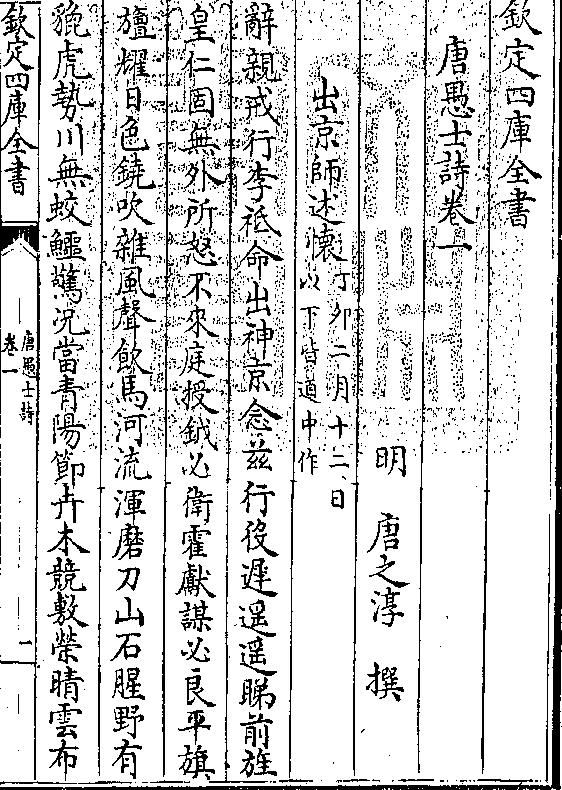 欽定四庫全書
唐愚士詩卷一
明　唐之淳　撰
出京師述懷丁夘二月十二日
以下皆道中作
辭親戒行李祗命出神京念兹行役遲遥遥睇前旌
皇仁固無外所怒不來庭授鉞必衛霍獻謀必良平旗
旜耀日色鐃吹雜風聲飲馬河流渾磨刀山石腥野有
貔虎勢川無蛟鱷驚况當青陽節卉木競敷榮晴雲布
欽定四庫全書
唐愚士詩
卷一
一